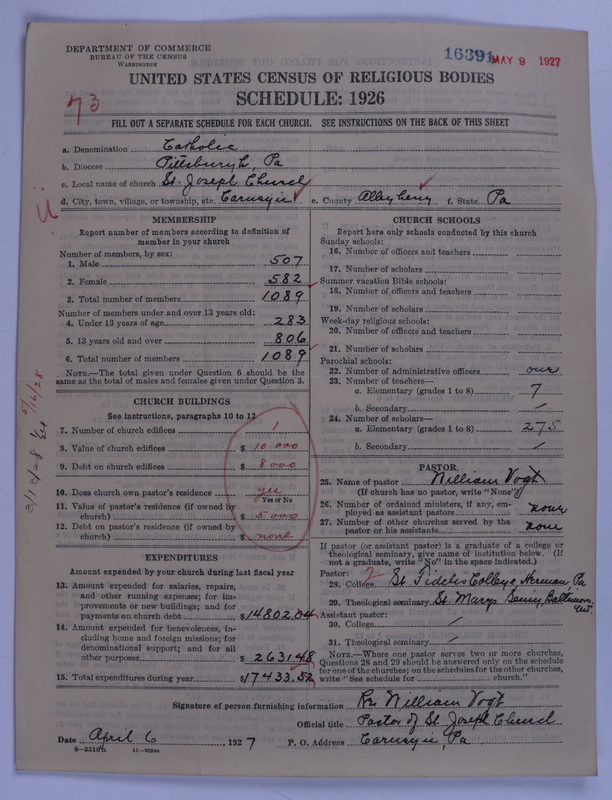 DEPARTMENT OF COMMERCE
BUREAU OF THE CENSUS
WASHINGTON
16391 MAY 9 1927
UNITED STATES CENSUS OF RELIGIOUS BODIES
SCHEDULE: 1926
73
FILL OUT A SEPARATE SCHEDULE FOR EACH CHURCH. SEE INSTRUCTIONS ON THE BACK OF THIS SHEET
a. Denomination Catholic
b. Diocese Pittsburgh, Pa
c. Local name of church St. Joseph Church
d. City, town, village, or township, etc. Carnegie e. County Allegheny f. State Pa
MEMBERSHIP
Report number of members according to definition of
member in your church
Number of members, by sex:
1. Male 507
2. Female 582
3. Total number of members 1089
Number of members under and over 13 years old:
4. Under 13 years of age 283
5. 13 years old and over 806
6. Total number of members 1089
NOTE.—The total given under Question 6 should be the
same as the total of males and females given under Question 3.
CHURCH BUILDINGS
See instructions, paragraphs 10 to 12
7. Number of church edifices 1
8. Value of church edifices $ 10 000
9. Debt on church edifices $ 8 000
10. Does church own pastor's residence yes
Yes or No
11. Value of pastor's residence (if owned by
church) $ 5 000
12. Debt on pastor's residence (if owned by
church) $ none
EXPENDITURES
Amount expended by your church during last fiscal year
13. Amount expended for salaries, repairs,
and other running expenses; for im-
provements or new buildings; and for
payments on church debt $ 14802.04
14. Amount expended for benevolences, in-
cluding home and foreign missions; for
denominational support; and for all
other purposes $ 2631.48
15. Total expenditures during year $ 17433.52
CHURCH SCHOOLS
Report here only schools conducted by this church
Sunday schools:
16. Number of officers and teachers
17. Number of scholars
Summer vacation Bible schools:
18. Number of officers and teachers
19. Number of scholars
Week-day religious schools:
20. Number of officers and teachers
21. Number of scholars
Parochial schools:
22. Number of administrative officers one
23. Number of teachers—
a. Elementary (grades 1 to 8) 7
b. Secondary /
24. Number of scholars—
a. Elementary (grades 1 to 8) 275
b. Secondary /
PASTOR
25. Name of pastor William Vogt
(If church has no pastor, write "None")
26. Number of ordained ministers, if any, em-
ployed as assistant pastors none
27. Number of other churches served by the
pastor or his assistants none
If pastor (or assistant pastor) is a graduate of a college or
theological seminary, give name of institution below. (If
not a graduate, write "No" in the space indicated.)
Pastor: 2
28. College St. Fidelis College, Herman Pa
29. Theological seminary St. Marys Seminy Baltimore,
Assistant pastor:
30. College /
31. Theological seminary /
NOTE.—Where one pastor serves two or more churches,
Questions 28 and 29 should be answered only on the schedule
for one of the churches; on the schedules for the other churches,
write "See schedule for church."
Signature of person furnishing information Rev William Vogt
Official title Pastor of St. Joseph Church
Date April 6, 1927 P. O. Address Carnegie, Pa
11—9064a